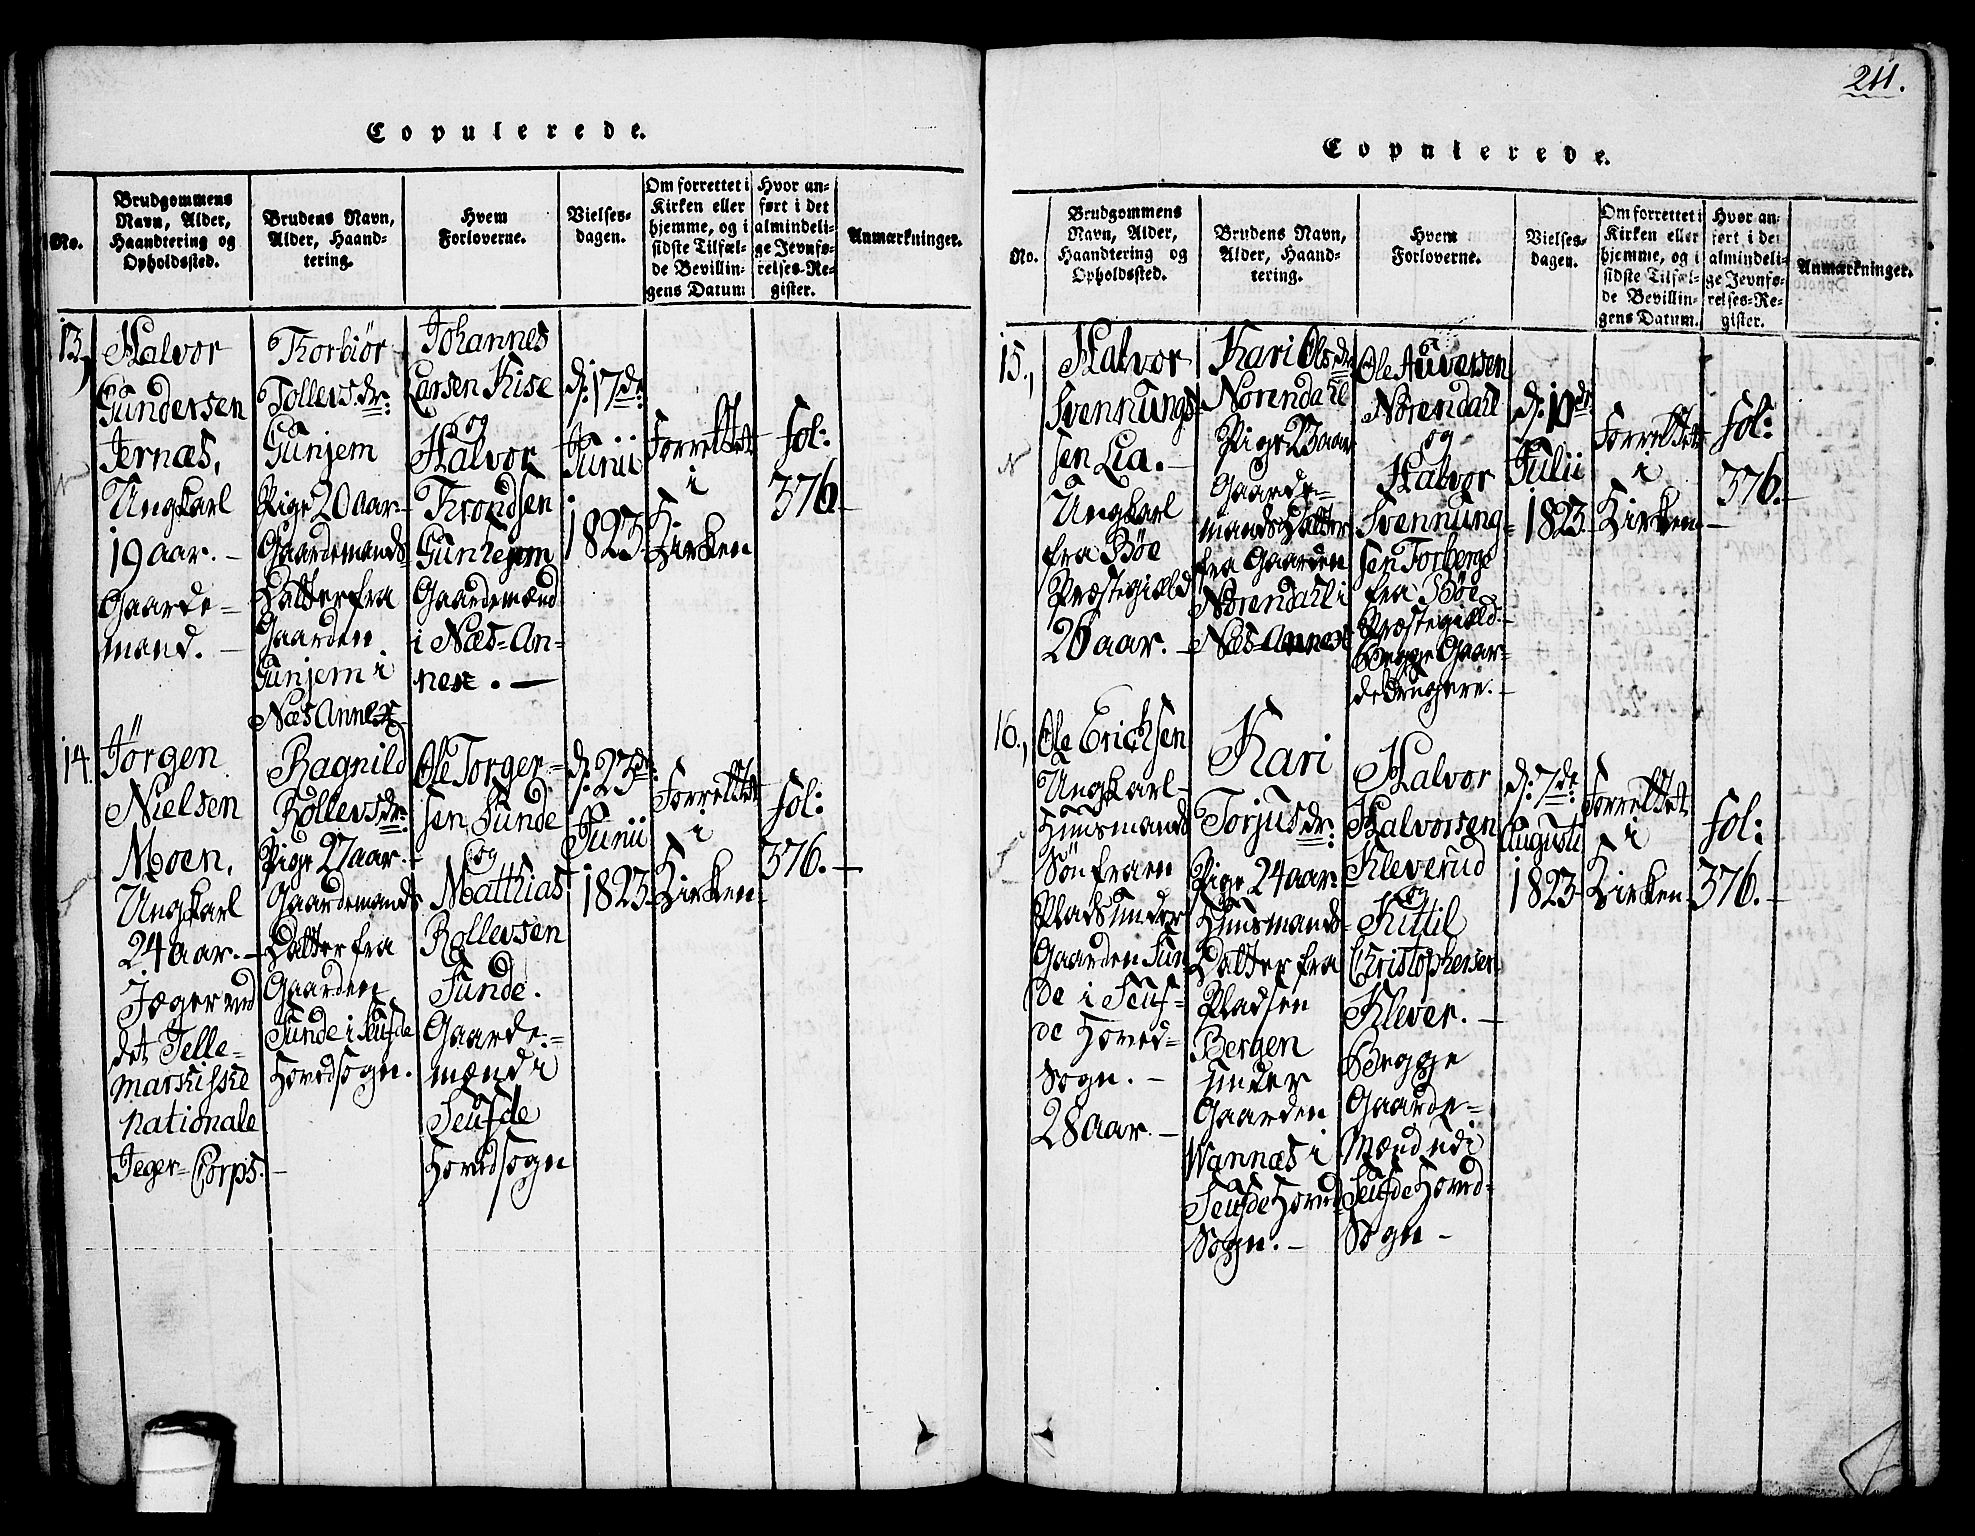 Copulerede.
No.
Brudgommens
Navn, Alder,
Haandtering og
Opholdssted.
Brudens Navn,
Alder, Haand-
tering.
Hvem
Forloverne.
Vielses-
dagen.
Om forrettet i
Kirken eller
hjemme, og i
sidste Tilfæl-
de Bevillin-
gens Datum.
Hvor an-
ført i det
almindeli-
ge Jevnfø-
relses-Re-
gister.
Anmærkninger.
13,
Halvor
Gundersen
Jernæs,
Ungkarl
19 aar. –
Gaarde-
mand. –
Thorbiör
Tollevs.dr:
Gunjem
Pige 20 aar
Gaardemands
Datter fra
Gaarden
Gunjem i
Næs Annex
Johannes
Larsen Kise
og
Halvor
Trondsen
Gunhejem
Gaardemænd
i Næs-An-
nex. –
d: 17de
Junii
1823
Forrettet
i
Kirken
fol:
376.
14.
Jørgen
Nielsen
Moen,
Ungkarl
24 aar. –
Jæger ved
det Telle-
markiske
nationale
Jeger-Corps. –
Ragnild
Rollevsdr:
Pige 27 aar. –
Gaardemands
Datter fra
Gaarden
Sunde i Seufde
Hovedsogn.
Ole Torger-
sen Sunde
og
Matthias
Rollevsen
Sunde.
Gaarde-
mænd i
Seufde
Hovedsogn
d: 23de:
Junii
1823
Forrettet
i
Kirken
fol:
376. –
211.
Copulerede.
No.
Brudgommens
Navn, Alder,
Haandtering og
Opholdssted.
Brudens Navn,
Alder, Haand-
tering.
Hvem
Forloverne.
Vielses-
dagen.
Om forrettet i
Kirken eller
hjemme, og i
sidste Tilfæl-
de Bevillin-
gens Datum.
Hvor an-
ført i det
almindeli-
ge Jevnfø-
relses-Re-
gister.
Anmærkninger.
15.,
Halvor
Svennungs-
sen Lia. –
Ungkarl
fra Bøe
Præstegiæld
26 aar. –
Kari Olsdr
Nörendahl
Pige 23 aar
Gaarde-
mands Datter
fra Gaarden
Nörendahl i
Næs-Annex
Ole Auversen
Nörendahl
og
Halvor
Svennung-
sen Torberge
fra Bøe
Præstegiæld. –
Begge Gaar-
debrugere. –
d: 10de
Julii
1823
Forrettet
i
Kirken
fol:
376. –
16.,
Ole Erichsen
Ungkarl
Huusmands
Søn fra en
Plads under
Gaarden Sun
de i Seuf-
de Hoved-
Sogn. –
28 aar. –
Kari
Torjusdr:
Pige 24 aar
Huusmands
Datter fra
Pladsen
Bergen
under
Gaarden
Wannæs i
Seufde Hoved
Sogn. –
Halvor
Halvorsen
Kleverud
og
Kittil
Christophersen
Klever. –
Begge
Gaarde-
Mænd udi
Seufde Hoved-
Sogn –
d: 7de:
Augusti
1823
Forrettet
i
Kirken
fol:
376. –